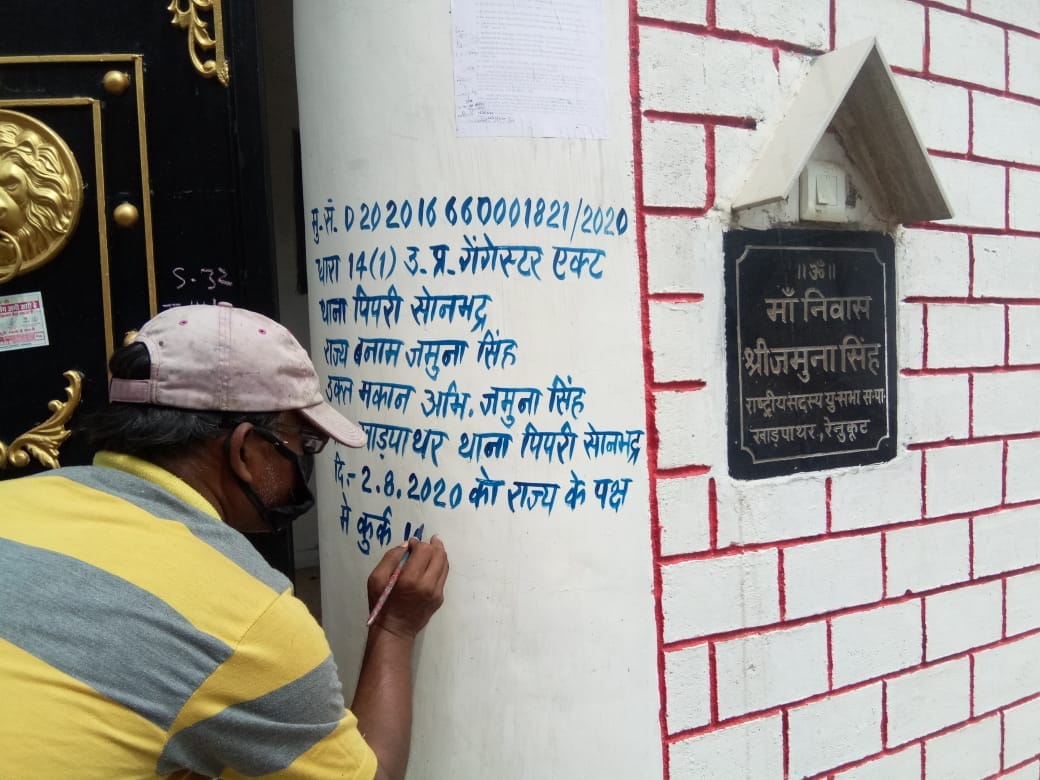 मु. सं. D202016660001821/2020
धारा 14(1) उ. प्र. गेंगेस्टर एक्ट
थाना पिपरी सोनभद्र
राज्य बनाम जमुना सिंह
उक्त मकान अभि. जमुना सिंह
खाड़पाथर थाना पिपरी सोनभद्र
दि.- 2.8.2020 को राज्य के पक्ष
मे कुर्क
S-32
॥ॐ॥
माँ निवास
श्री जमुना सिंह
राष्ट्रीय सदस्य यु.सभा स.पा.
खाड़पाथर, रेनुकूट